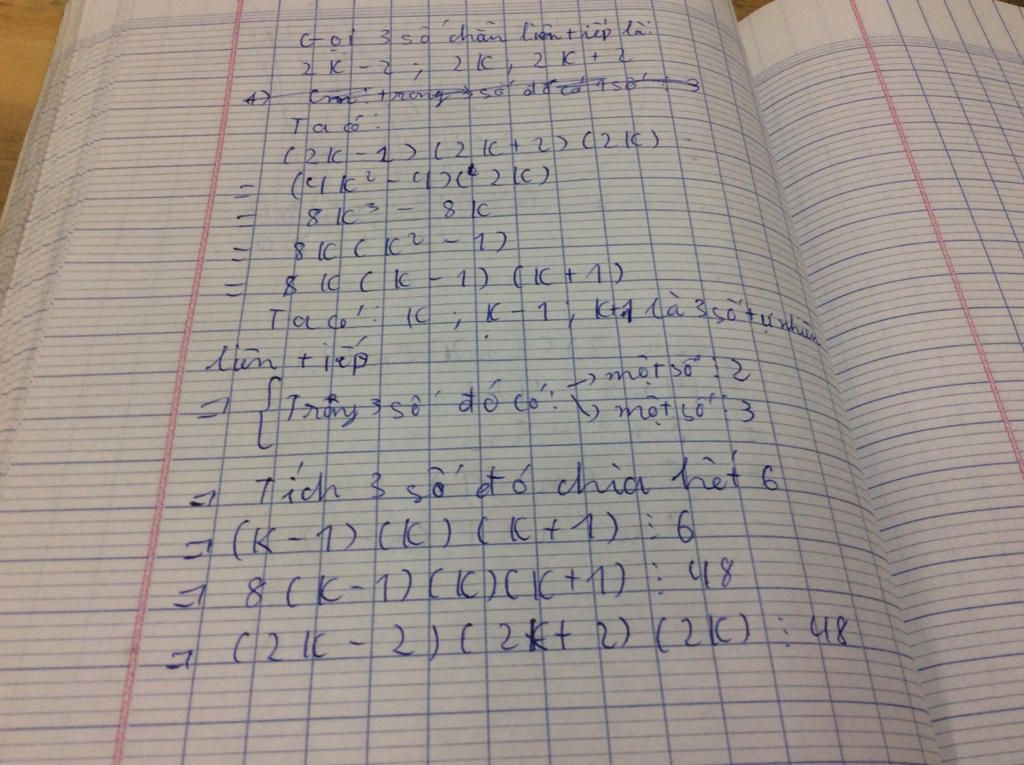 Gọi 3 số chẵn liên tiếp là:
2K-2; 2K, 2K+2
Ta có:
(2K-2)(2K+2)(2K)
= (4K²-4)(2K)
= 8K³ - 8K
= 8K(K²-1)
= 8K(K-1)(K+1)
Ta có: K; K-1, K+1 là 3 số tự nhiên
liên tiếp
=> { Trong 3 số đó có: -> một số ⋮ 2
-> một số ⋮ 3
=> Tích 3 số đó chia hết 6
=> (K-1)(K)(K+1) ⋮ 6
=> 8(K-1)(K)(K+1) ⋮ 48
=> (2K-2)(2K+2)(2K) ⋮ 48